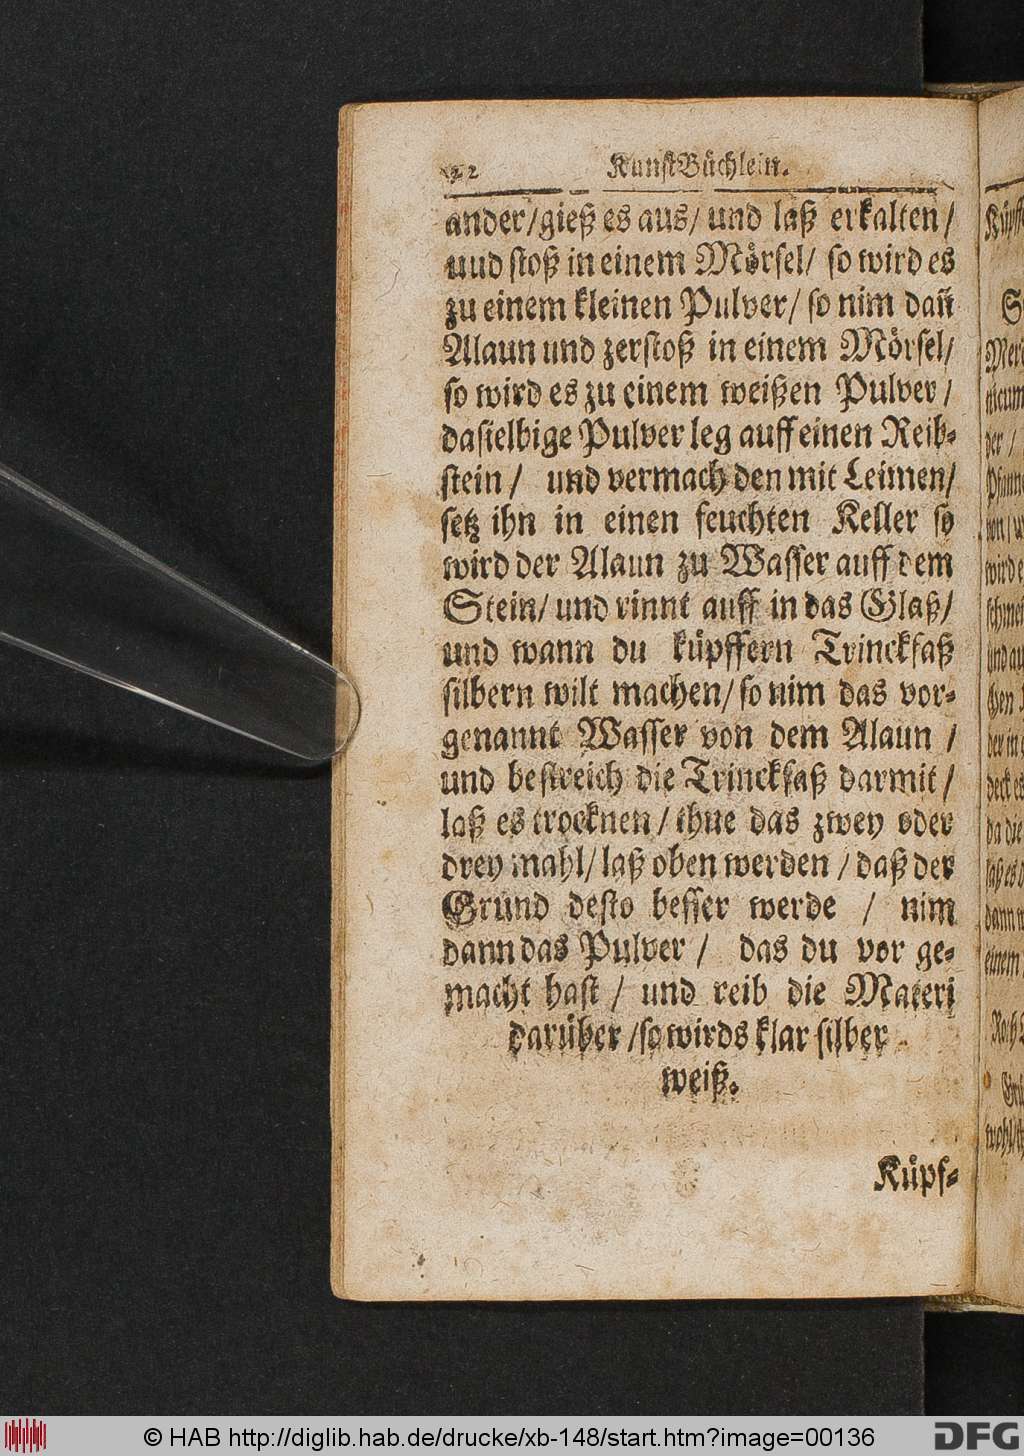 KunstBüchlein.
ander/gieß es aus/ und laß erkalten/
uud stoß in einem Mörsel/ so wird es
zu einem kleinen Pulver/ so nim dañ
Alaun und zerstoß in einem Mörsel/
so wird es zu einem weißen Pulver/
dasselbige Pulver leg auff einen Reib-
stein/ und vermach den mit Leimen/
setz ihn in einen feuchten Keller so
wird der Alaun zu Wasser auff dem
Stein/ und rinnt auff in das Glaß/
und wann du küpffern Trinckfaß
silbern wilt machen/ so nim das vor-
genannt Wasser von dem Alaun /
und bestreich die Trinckfaß darmit/
laß es trocknen/ thue das zwey oder
drey mahl/ laß oben werden/ daß der
Grund desto besser werde / nim
dann das Pulver/ das du vor ge-
macht hast/ und reib die Materi
darüber/so wirds klar silber-
weiß.
Küpf-
© HAB http://diglib.hab.de/drucke/xb-148/start.htm?image=00136
DFG